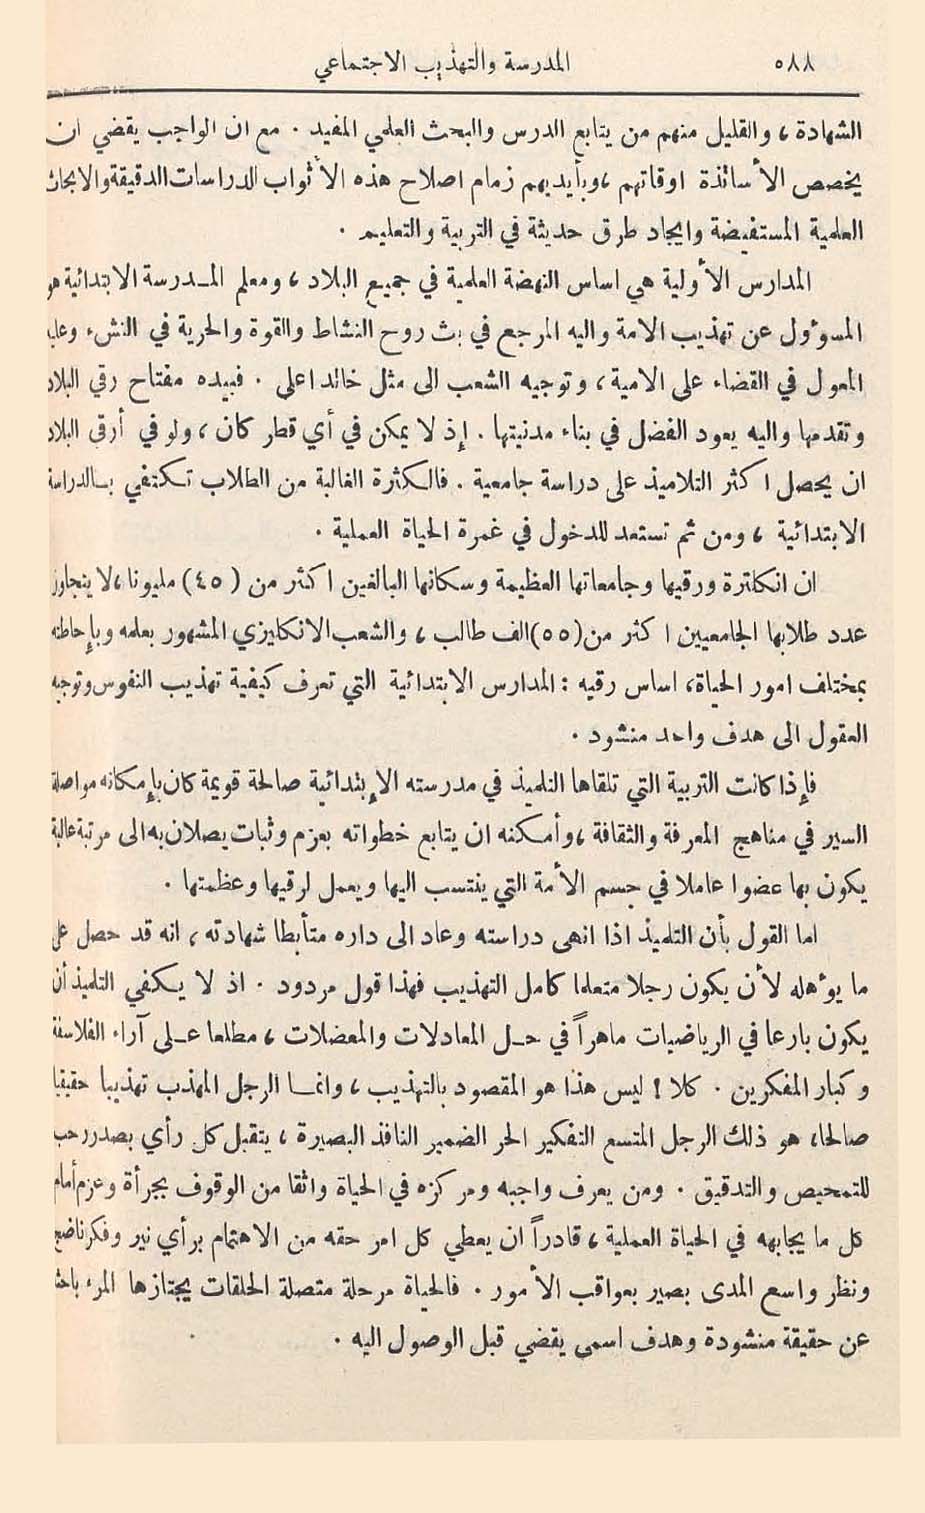 ٥٨٨ المدرسة والتهذيب الاجتماعي
الشهادة ، والقليل منهم من يتابع الدرس والبحث العلمي المفيد . مع ان الواجب يقضي ان
يخصص الأساتذة اوقاتهم ، وبأيديهم زمام اصلاح هذه الأثواب للدراسات الدقيقة والابحاث
العلمية المستفيضة وايجاد طرق حديثة في التربية والتعليم .
المدارس الأولية هي اساس النهضة العلمية في جميع البلاد ، ومعلم المـدرسة الابتدائية هو
المسوٴول عن تهذيب الامة واليه المرجع في بث روح النشاط والقوة والحرية في النشء وعليه
المعول في القضاء على الامية ، وتوجيه الشعب الى مثل خالد اعلى . فبيده مفتاح رقي البلاد
وتقدمها واليه يعود الفضل في بناء مدنيتها . إذ لا يمكن في أي قطر كان ، ولو في أرقى البلاد
ان يحصل اكثر التلاميذ على دراسة جامعية . فالكثرة الغالبة من الطلاب تكتفي بـالدراسة
الابتدائية ، ومن ثم تستعد للدخول في غمرة الحياة العملية .
ان انكلترة ورقيها وجامعاتها العظيمة وسكانها البالغين اكثر من ( ٤٥ ) مليونا ، لا يتجاوز
عدد طلابها الجامعيين اكثر من (٥٥) الف طالب ، والشعب الانكليزي المشهور بعلمه وبإحاطته
بمختلف امور الحياة ، اساس رقيه : المدارس الابتدائية التي تعرف كيفية تهذيب النفوس وتوجيه
العقول الى هدف واحد منشود .
فإذا كانت التربية التي تلقاها التلميذ في مدرسته الإبتدائية صالحة قويمة كان بإمكانه مواصلة
السير في مناهج المعرفة والثقافة ، وأمكنه ان يتابع خطواته بعزم وثبات يصلان به الى مرتبة عالية
يكون بها عضوا عاملا في جسم الأمة التي ينتسب اليها ويعمل لرقيها وعظمتها .
اما القول بأن التلميذ اذا انهى دراسته وعاد الى داره متأبطا شهادته ، انه قد حصل على
ما يوٴهله لأن يكون رجلا متعلما كامل التهذيب فهذا قول مردود . اذ لا يـكفي التلميذ أن
يكون بارعا في الرياضيات ماهراً في حـل المعادلات والمعضلات ، مطلعا عـلى آراء الفلاسفة
وكبار المفكرين . كلا ! ليس هذا هو المقصود بالتهذيب ، وانمـا الرجل المهذب تهذيبا حقيقيا
صالحا ، هو ذلك الرجل المتسع التفكير الحر الضمير النافذ البصيرة ، يتقبل كل رأي بصدر رحب
للتمحيص والتدقيق . ومن يعرف واجبه ومركزه في الحياة واثقا من الوقوف بجرأة وعزم أمام
كل ما يجابهه في الحياة العملية ، قادراً ان يعطي كل امر حقه من الاهتمام برأي نير وفكر ناضج
ونظر واسع المدى بصير بعواقب الأمور . فالحياة مرحلة متصلة الحلقات يجتازها المرء باحثا
عن حقيقة منشودة وهدف اسمى يقضي قبل الوصول اليه .